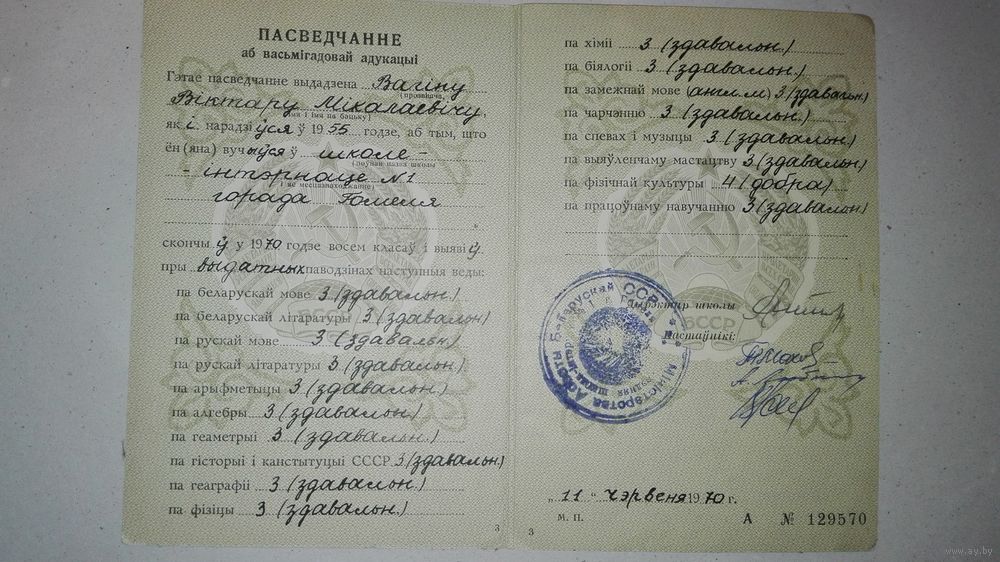 ПАСВЕДЧАННЕ
аб васьмігадовай адукацыі
Гэтае пасведчанне выдадзена Вагіну
(прозвішча,
Віктару Мікалаевічу,
імя і імя па бацьку)
які нарадзіўся ў 1955 годзе, аб тым, што
ён (яна) вучыўся ў школе-
(поўная назва школы
-інтэрнаце №1
і яе месцазнаходжанне)
горада Гомеля
скончыў у 1970 годзе восем класаў і выявіў
пры выдатных паводзінах наступныя веды:
па беларускай мове 3 (здавалон.)
па беларускай літаратуры 3 (здавалон)
па рускай мове 3 (здавальн)
па рускай літаратуры 3 (здавалон.)
па арыфметыцы 3 (здавалон.)
па алгебры 3 (здавалон.)
па геаметрыі 3 (здавалон.)
па гісторыі і канстытуцыі СССР 3 (здавалон.)
па геаграфіі 3 (здавалон.)
па фізіцы 3 (здавалон.)
3
па хіміі 3 (здавалон.)
па біялогіі 3 (здавалон.)
па замежнай мове (англ.м) 3 (здавальн.)
па чарчэнню 3 (здавалон.)
па спевах і музыцы 3 (здавальн.)
па выяўленчаму мастацтву 3 (здавалон)
па фізічнай культуры 4 (добра)
па працоўнаму навучанню 3 (здавалон)
Дырэктар школы
БССР
Настаўнікі:
Міністэрства Асветы Беларускай ССР
„11" чэрвеня 1970 г.
М. П.
А № 129570
3
www.ay.by